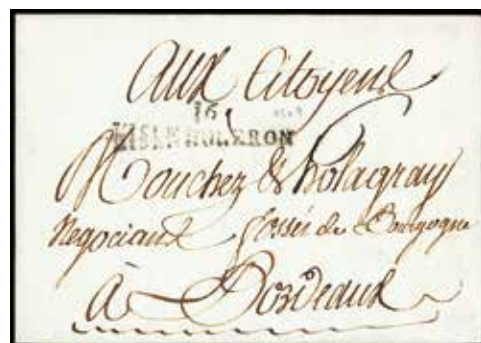 Aux Citoyens
16
L'ISLE D'OLERON
Mouchez &
Negociant fossés de Bourgogne
à Bordeaux